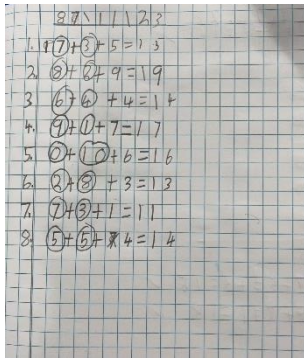 27\11\23
1. 7+3+5=15
2. 8+2+9=19
3 6+4+4=14
4. 9+1+7=17
5. 0+10+6=16
6. 2+8+3=13
7. 7+3+1=11
8. 5+5+4=14